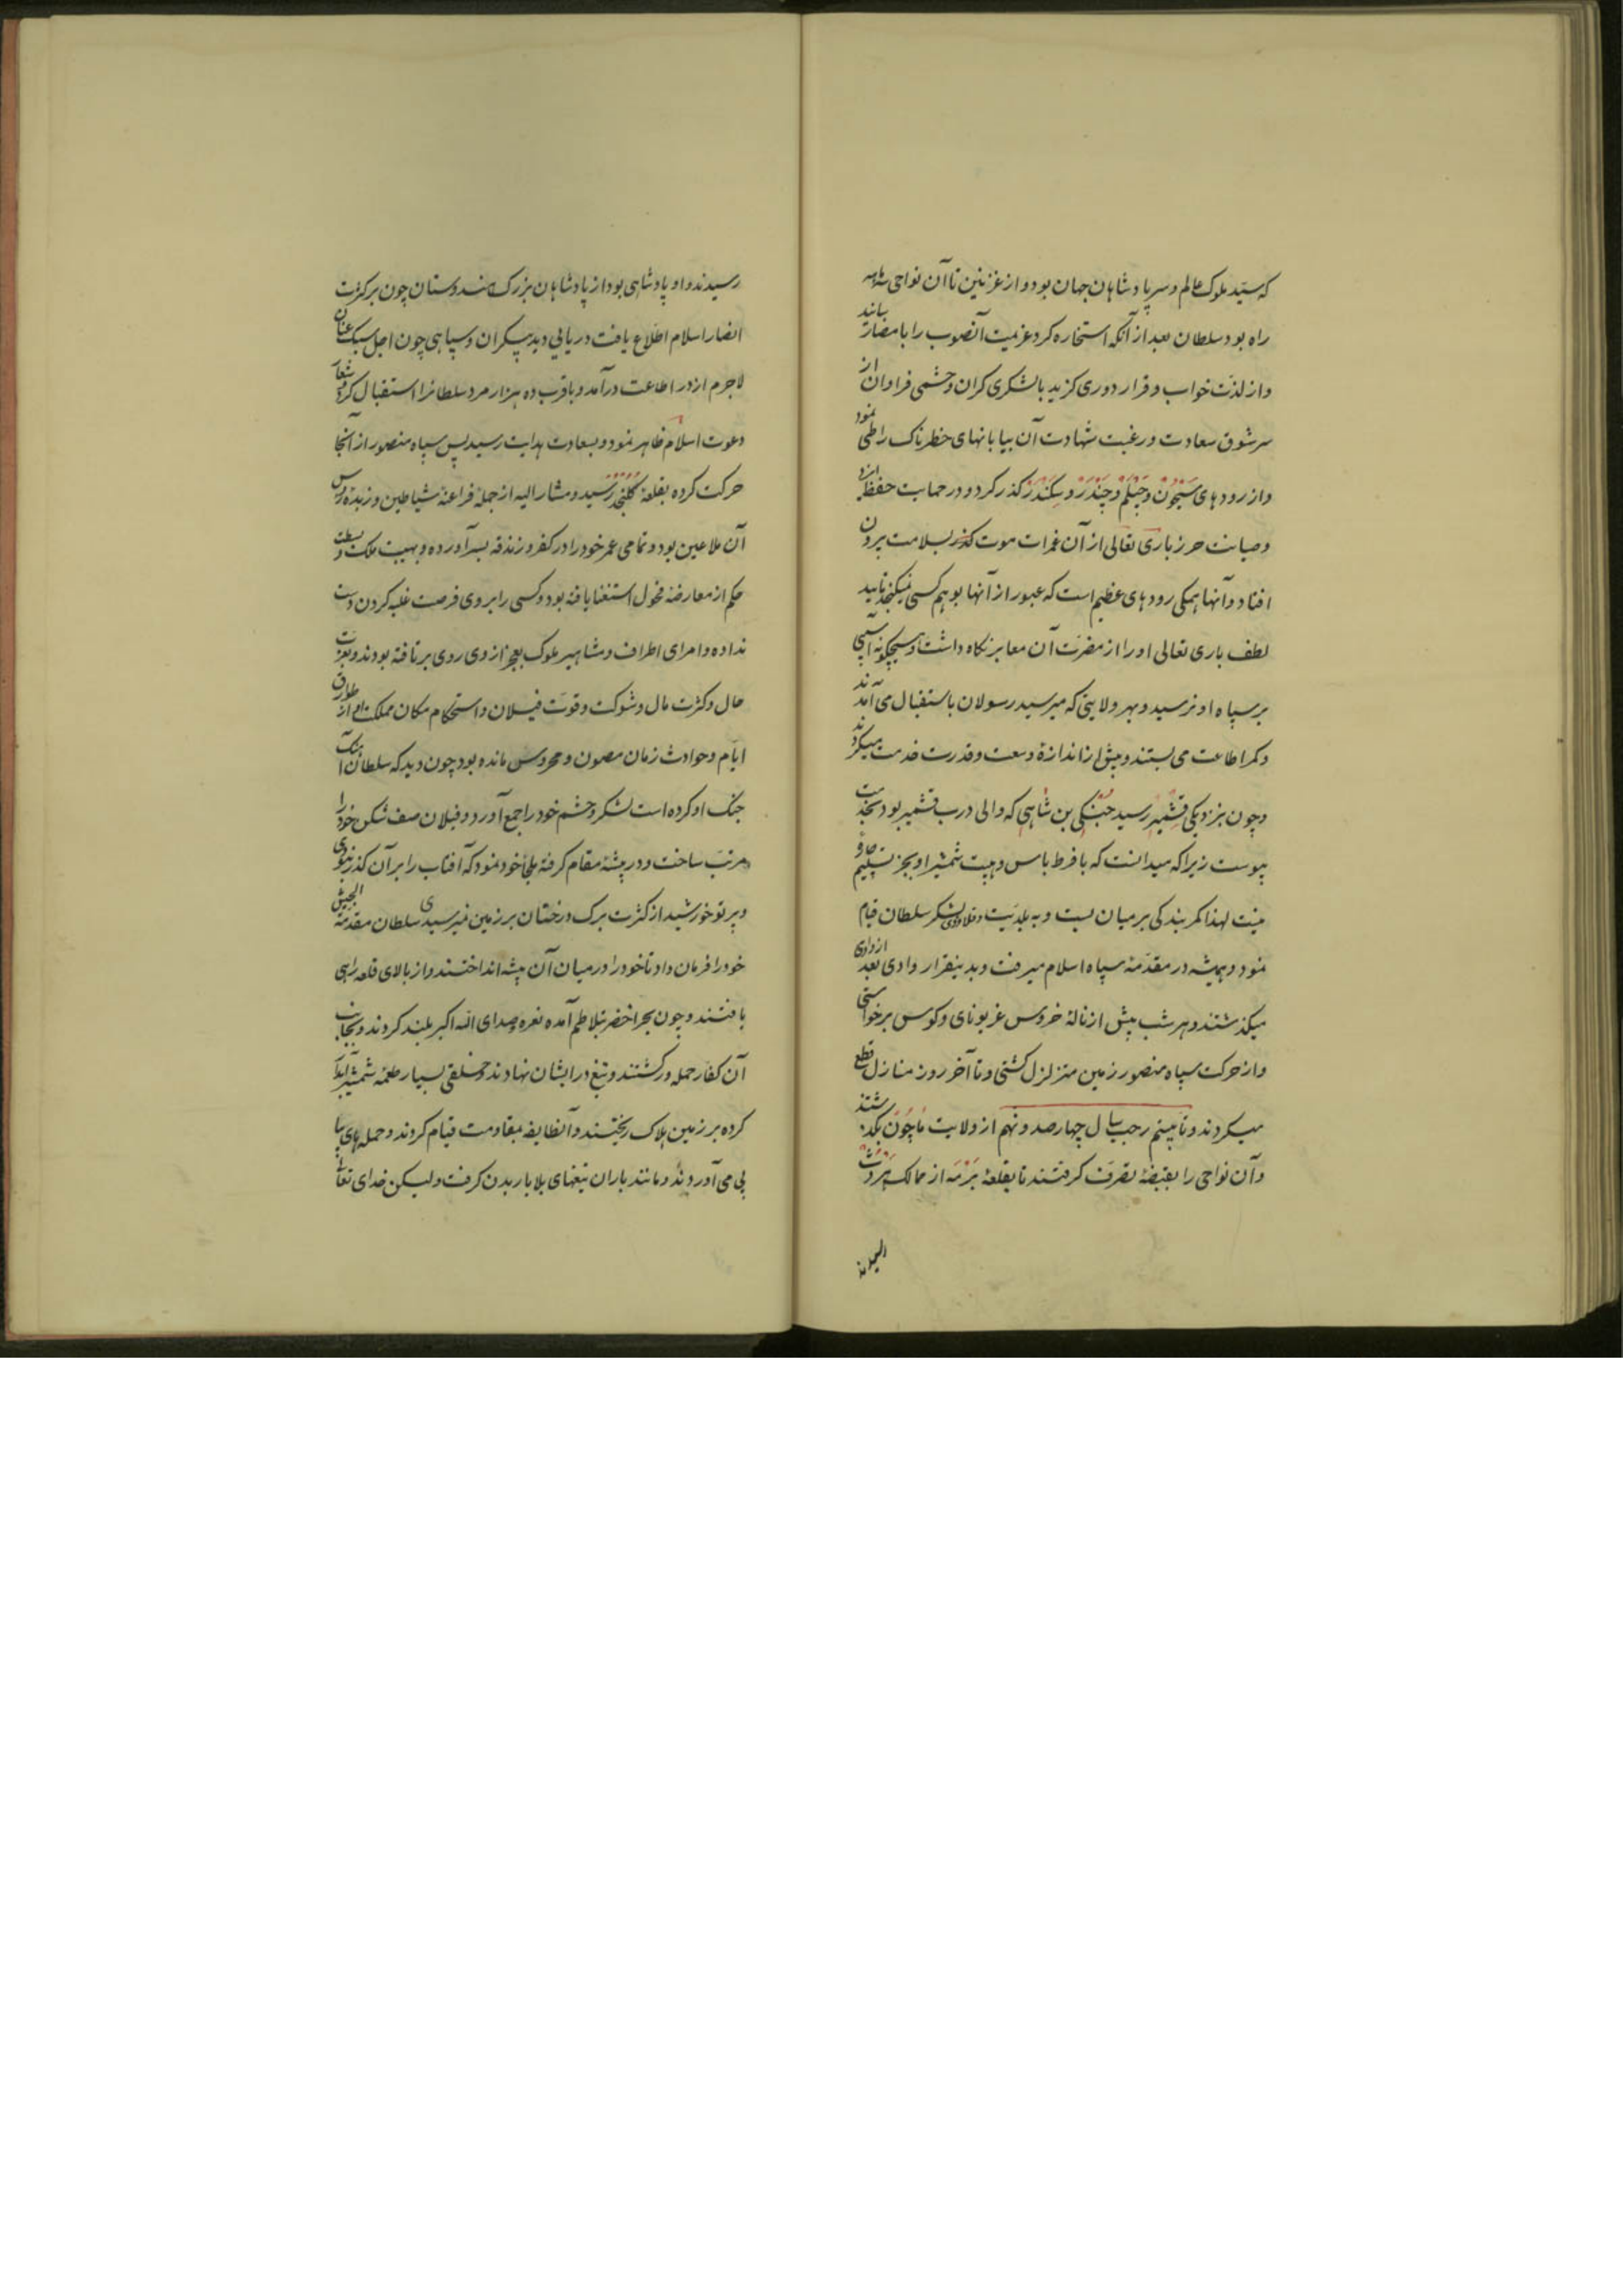 که سید ملوک عالم و سر پادشاهان جهان بود و از غزنین تا آن نواحی سه ماهه
راه بود سلطان بعد از آنکه استخاره کرد عزیمت آنصوب را بامضا رسانید
و از لذت خواب و قرار دوری گزید با لشکری گران و حشمی فراوان از
سر شوق سعادت و رغبت شهادت آن بیابانهای خطرناک را طی نمود
و از رودهای سیحون و جیلم و چندر و سکندر گذر کرد و در حمایت حفظ ایزد
و صیانت حرز باری تعالی از آن غمرات موت بسلامت بیرون
افتاد و آنها همگی رودهای عظیم است که عبور از آنها بوهم کسی نمیگنجد تایید
لطف باری تعالی او را از مضرت آن معابر نگاه داشت و هیچگونه آسیبی
بر سپاه او نرسید و بهر ولایتی که میرسید رسولان باستقبال می آمدند
و کمر اطاعت می بستند و بیش از اندازه وسعت و قدرت خدمت میکردند
و چون بنزدیکی قشمیر رسید جنکی بن شاهی که والی درب قشمیر بود بخدمت
پیوست زیرا که میدانست که با فرط باس و هیبت شمشیر او بجز تسلیم چاره
نیست لهذا کمر بندگی بر میان بست و به بلدیت و قلاووزی لشکر سلطان قیام
نمود و همیشه در مقدمه سپاه اسلام میرفت و بدینقرار وادی بعد از وادی
میگذشتند و هر شب پیش از ناله خروس غریو نای و کوس برخواستی
و از حرکت سپاه منصور زمین متزلزل گشتی و تا آخر روز منازل قطع
میکردند و تا بیستم رجب سال چهارصد و نهم از ولایت ماجون بگذشتند
و آن نواحی را بقبضه تصرف گرفتند تا بقلعه برمه از ممالک هروت
رسیدند
رسیدند و او پادشاهی بود از پادشاهان بزرگ هندوستان چون بر کثرت
انصار اسلام اطلاع یافت دریایی دید بیکران و سپاهی چون اجل سبک عنان
لاجرم از در اطاعت درآمد و با قرب ده هزار مرد سلطانرا استقبال کرد و شعار
دعوت اسلام ظاهر نمود و بسعادت هدایت رسید پس سپاه منصور از آنجا
حرکت کرده بقلعه کلنجد رسید و مشار الیه از جمله فراعنه شیاطین و زبده رؤس
آن ملاعین بود و تمامی عمر خود را در کفر و زندقه بسر آورده و بهیبت ملک و بسطت
حکم از معارضه فحول استغنا یافته بود و کسی را بر وی فرصت غلبه کردن دست
نداده و امرای اطراف و مشاهیر ملوک بعجز از وی روی برتافته بودند و بعزت
حال و کثرت مال و شوکت و قوت فیلان و استحکام مکان مملکت او از طوارق
ایام و حوادث زمان مصون و محروس مانده بود چون دید که سلطان آهنگ
جنگ او کرده است لشکر و حشم خود را جمع آورد و فیلان صف شکن خود را
مرتب ساخت و در بیشه مقام گرفته ملجأ خود نمود که آفتاب را بر آن گذر نبودی
و پرتو خورشید از کثرت برگ درختان بر زمین نمیرسیدی سلطان مقدمة الجیش
خود را فرمان داد تا خود را در میان آن بیشه انداختند و از بالای قلعه راهی
یافتند و چون بحر اخضر بتلاطم آمده نعره و صدای الله اکبر بلند کردند و بجانب
آن کفار حمله ور گشتند و تیغ در ایشان نهادند و خلقی بسیار طعمه شمشیر آبدار
کرده بر زمین هلاک ریختند و آنطایفه بمقاومت قیام کردند و حمله های پیا
پی می آوردند و مانند باران تیغهای بلا باریدن گرفت ولیکن خدای تعالی